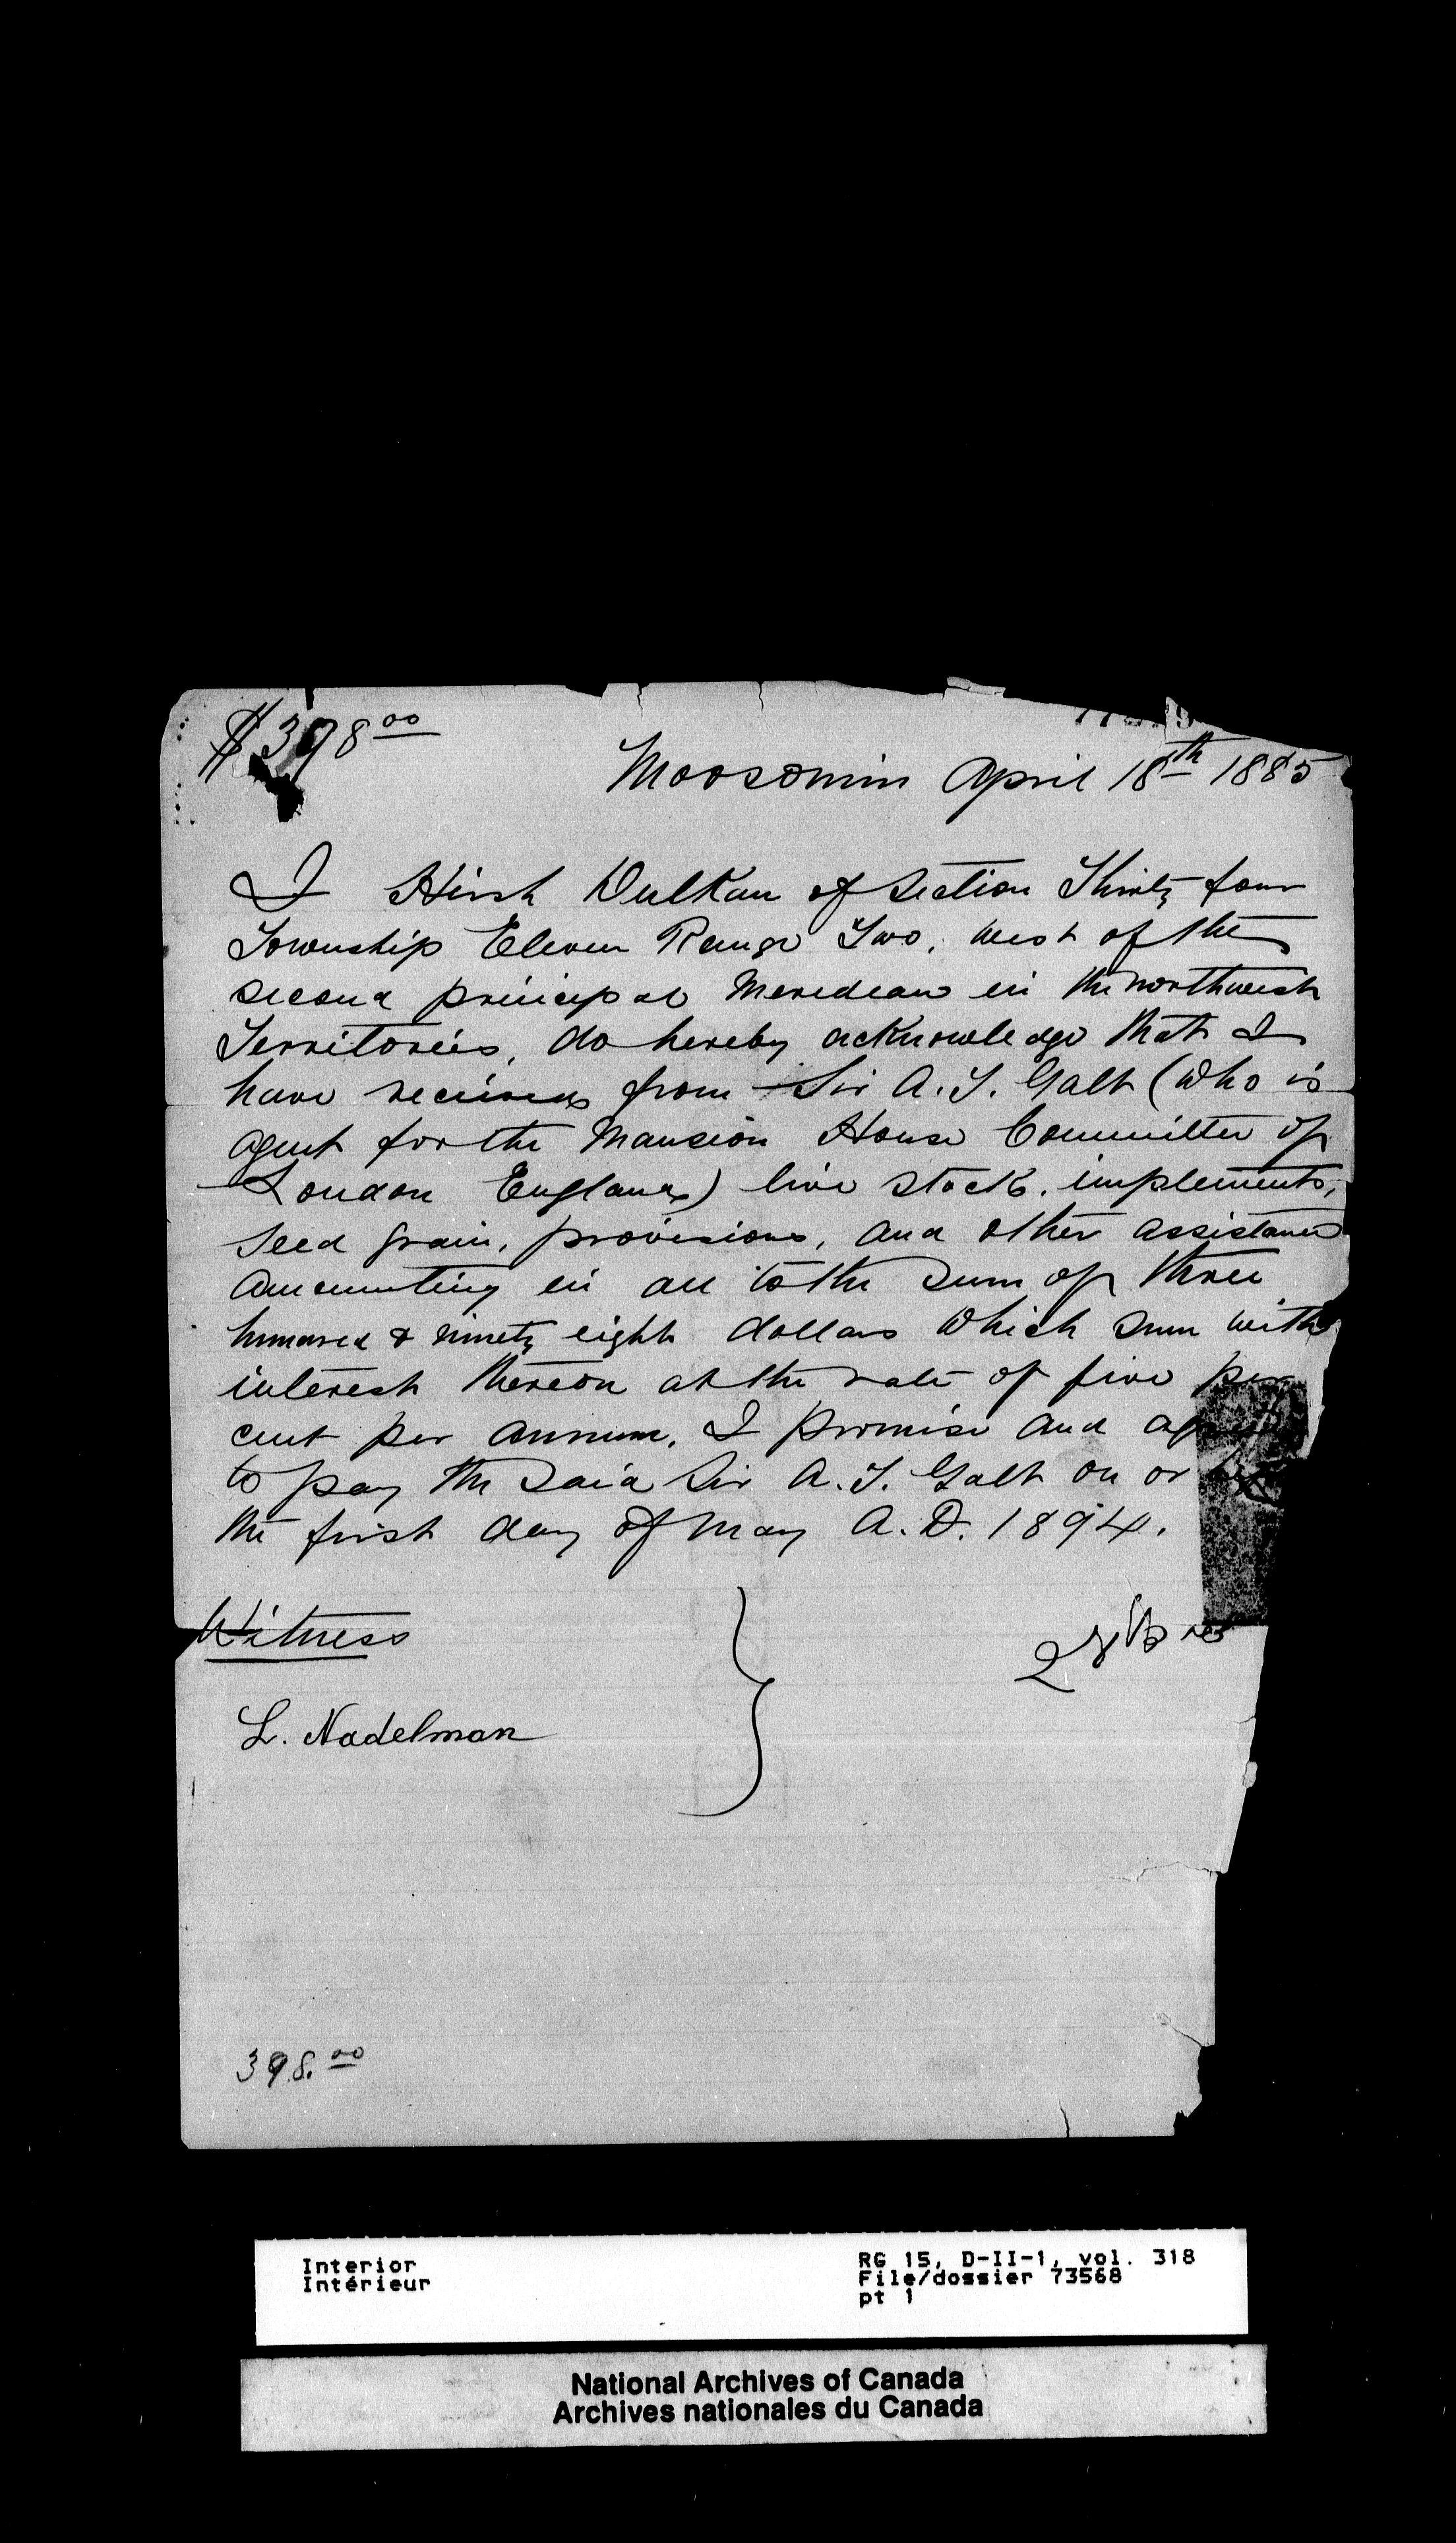 $398 00
Moosomin April 18th 1885
I Hirsh Vulkan of Section Thirty four
Township Eleven Range Two, west of the
second principal Meredian in the northwest
Territories, do hereby acknowledge that I
have received from Sir A. T. Galt (who is
agent for the Mansion House Committee of
London England) live stock, implements,
seed grain, provisions, and other assistance
amounting in all to the sum of three
hundred & ninety eight dollars which sum with
interest thereon at the rate of five per
cent per annum, I promise and agree
to pay the said Sir A. T. Galt on or
the first day of May A.D. 1894.
Witness
L. Nadelman
398.00
Interior
Intérieur
RG 15, D-II-1, vol. 318
File/dossier 73568
pt 1
National Archives of Canada
Archives nationales du Canada